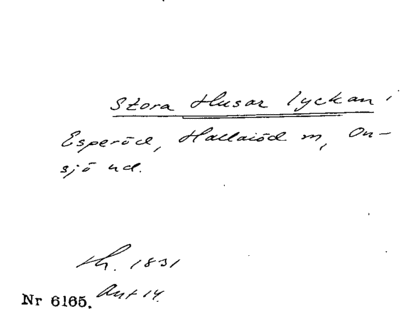 Stora Husar lyckan i
Esperöd, Hallaröd m, On-
sjö hd.
Th. 1831
Nr 6165. Art 14.